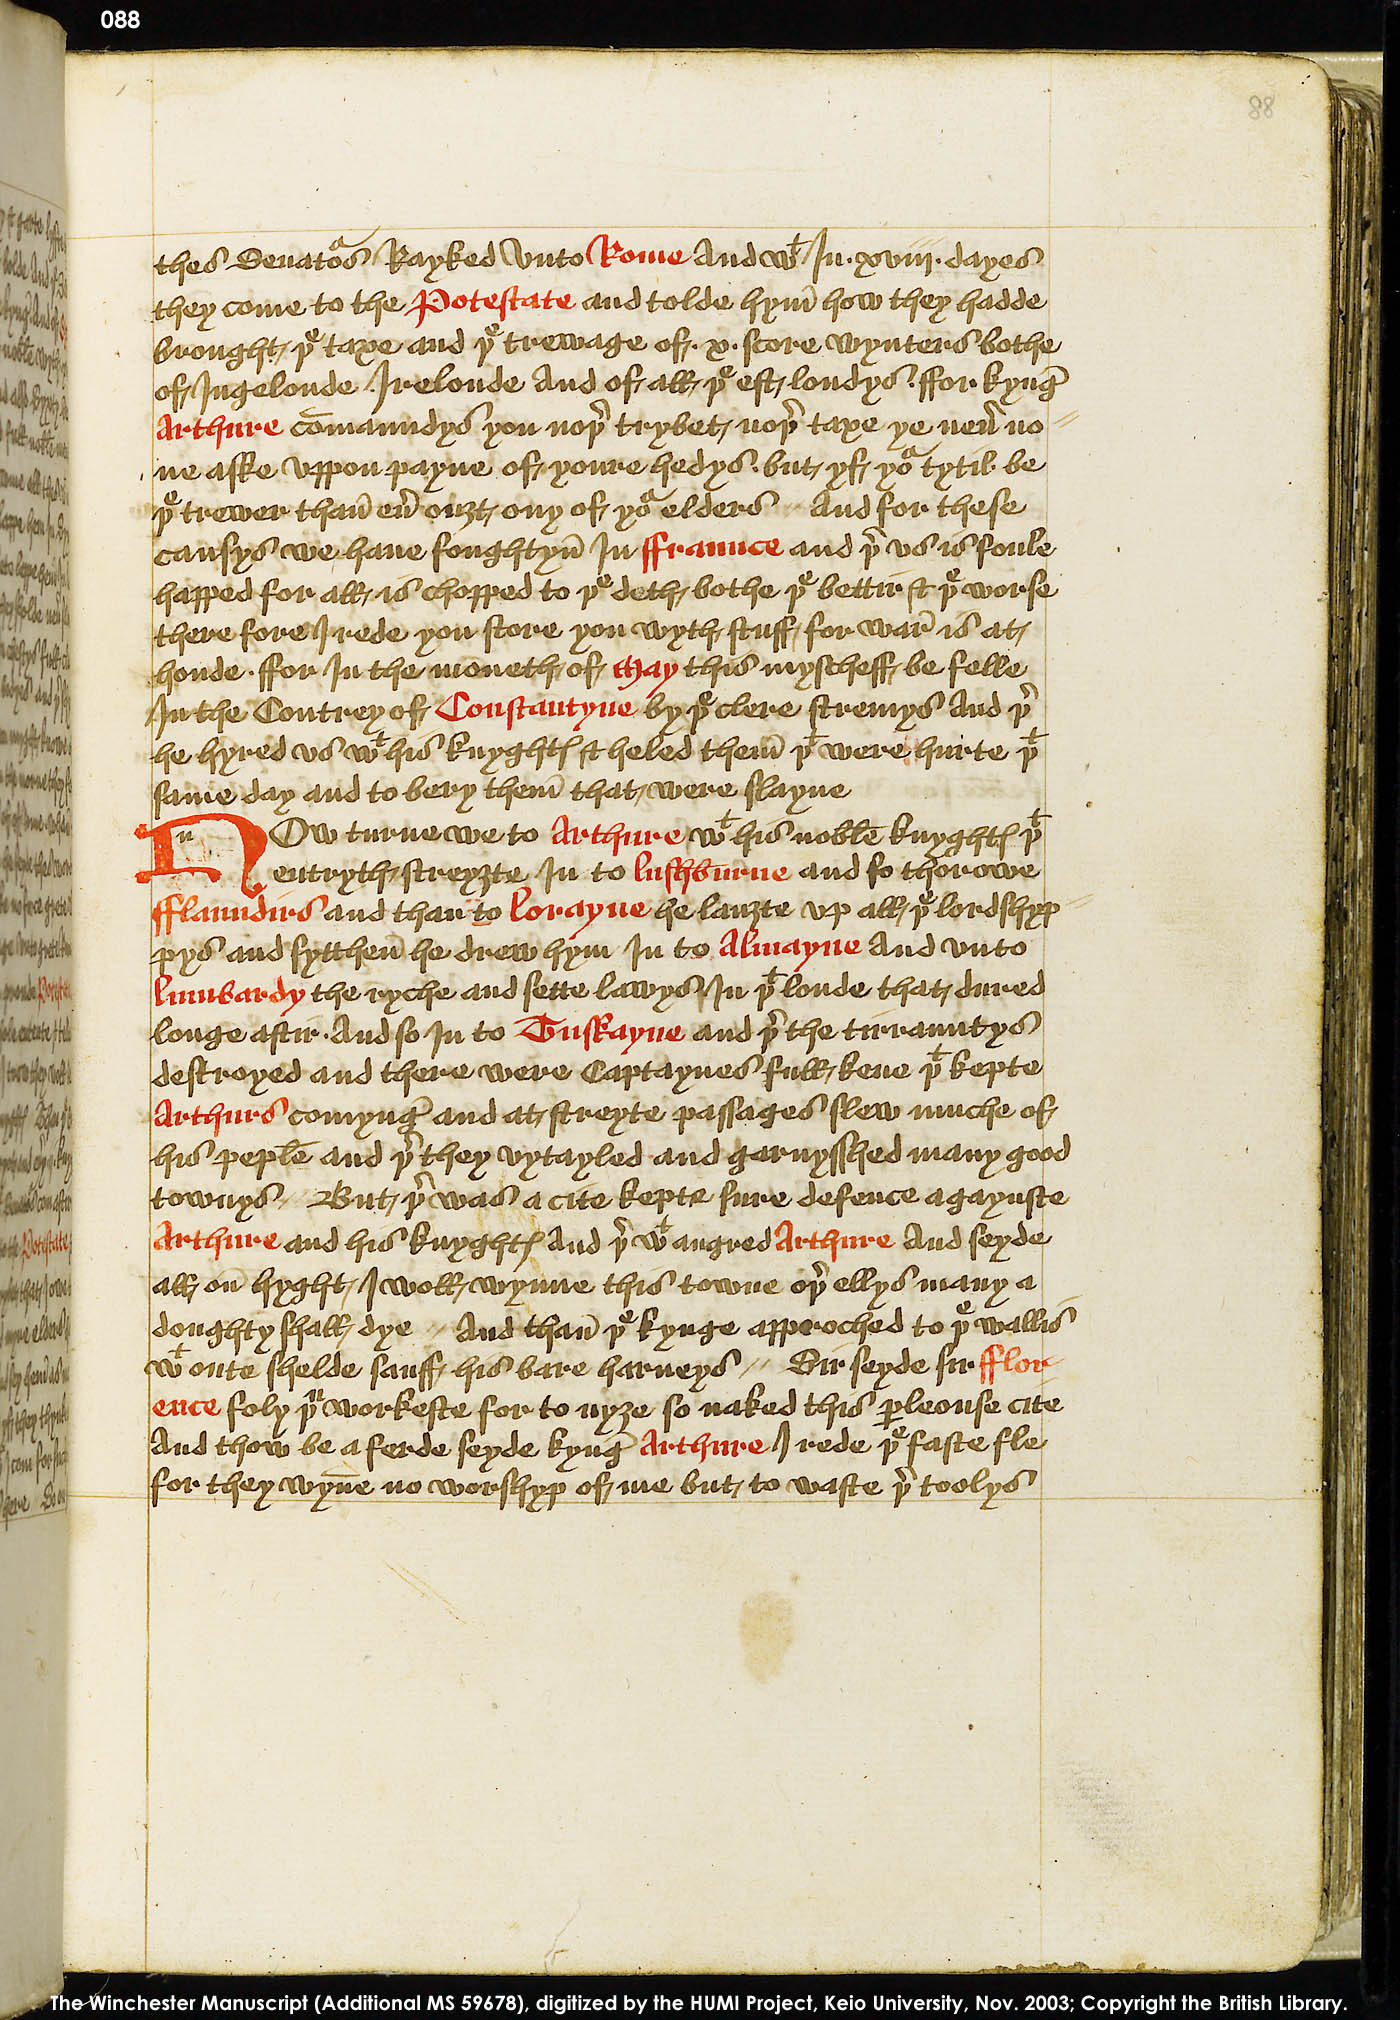 088
88
thes Senatoᵃs Rayked vnto Rome And wᵗ In · xviii · dayes
they come to the Potestate and tolde hym̄ how they hadde
brought þᵉ taxe and þᵉ trewage of · x · score wynters bothe
of Ingelonde Irelonde And of all þᵉ est londys · ffor kyngͤ
Arthure com̄aundys you noþʳ trybet noþʳ taxe ye neu̔ no //
ne aske vppon payne of youre hedys · but yf yoᵃ tytil be
þᵉ trewer than̄ eu̔ ouȝt ony of yoᵃ elders // And for these
causys we haue foughtyn̄ In ffraunce and þʳ vs is foule
happed for all is chopped to þᵉ deth bothe þᵉ bettir & þᵉ worse
there fore I rede you store you wyth stuff for war̄ is at
honde · ffor In the moneth of May this myscheff be felle
In the Contrey of Constantyne by þᵉ clere stremys And þʳ
he hyred vs wᵗ his knyghtꝭ & heled them̄ þᵗ were hurte þᵗ
same day and to bery them̄ that were slayne
n
NOw turne we to Arthure wᵗ his noble knyghtꝭ þᵗ
entryth streyȝte In to lushburne and so thorowe
fflaundirs and than to lorayne he lauȝte vp all þᵉ lordshyp //
pys and sytthen̄ he drew hym In to Almayne And vnto
lumbardy the ryche and sette lawys In þᵗ londe that dured
longe aftir · And so In to Tuskayne and þʳ the tirrauntys
destroyed and there were Captaynes full kene þᵗ kepte
Arthurs comyngͤ and at streyte passages slew muche of
his peple and þʳ they vytayled and garnysshed many good
townys // But þʳ was a cite kepte sure defence agaynste
Arthure and his knyghtꝭ And þʳ wᵗ angred Arthure And seyde
all on̄ hyght I woll wynne this towne oþʳ ellys many a
doughty shall dye // And than̄ þᵉ kynge approched to þᵉ wallis
wᵗ oute shelde sauff his bare harneys // Sir seyde sir fflor
ence foly þᵘ workeste for to nyȝe so naked this ꝑleouse cite
And thow be a ferde seyde kyngͤ Arthure I rede þᵉ faste fle
for they wyn̄e no worshyp of me but to waste þʳ toolys
The Winchester Manuscript (Additional MS 59678), digitized by the HUMI Project, Keio University, Nov. 2003; Copyright the British Library.